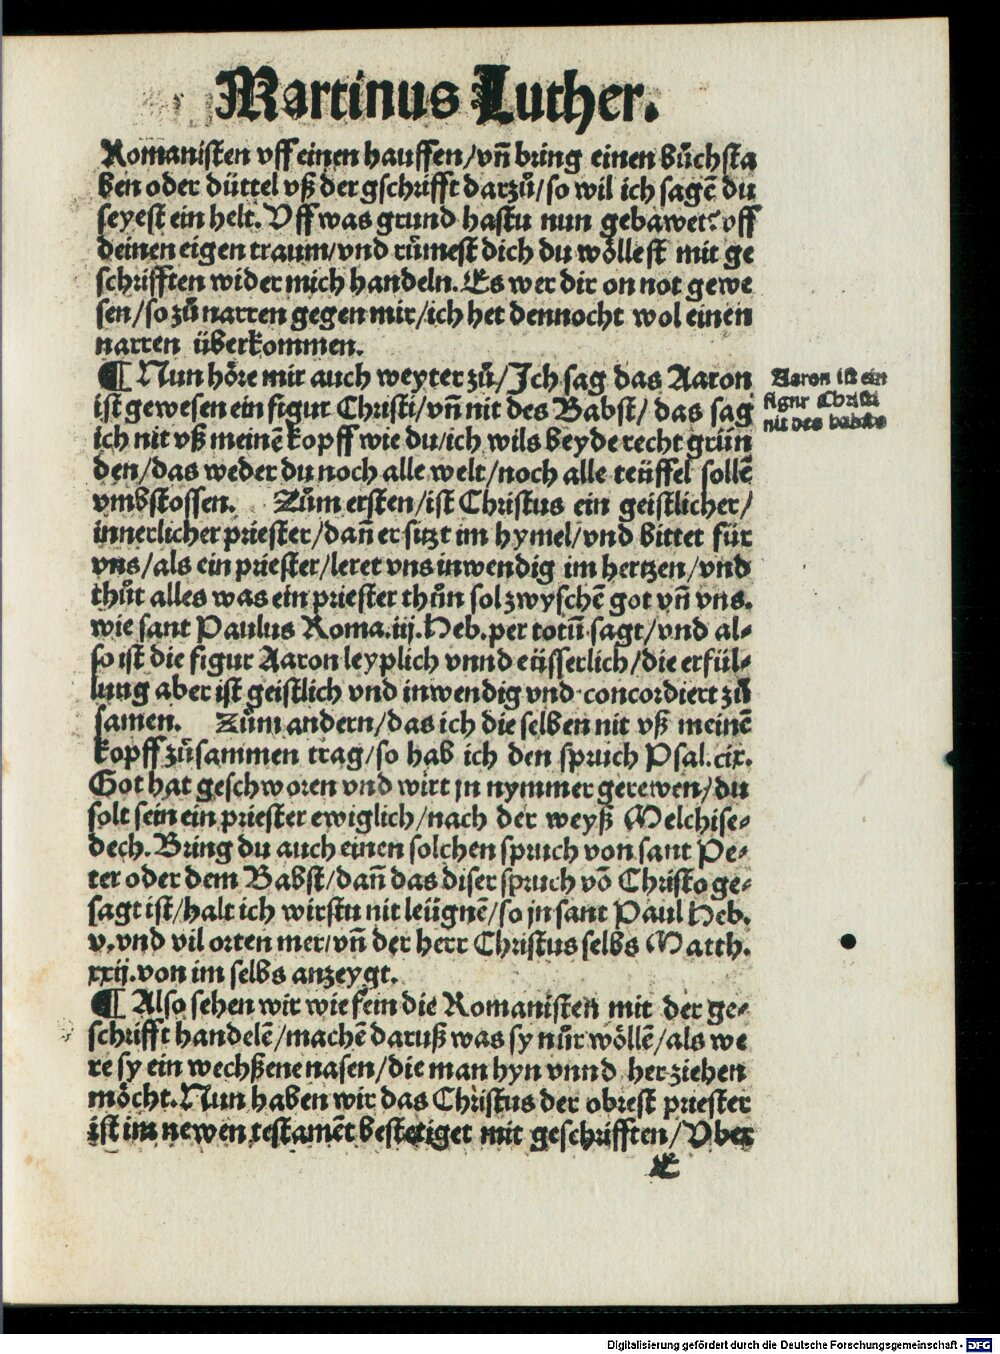 Martinus Luther.
Romanisten vff einen hauffen/vñ bring einen bůchsta
ben oder düttel vß der gschrifft darzů/so wil ich sagē du
seyest ein helt. Vff was grund hastu nun gebawet? vff
deinen eigen traum/vnd růmest dich du wöllest mit ge
schrifften wider mich handeln. Es wer dir on not gewe
sen/so zů narren gegen mir/ich het dennocht wol einen
narren überkommen.
¶ Nun höre mir auch weyter zů/Ich sag das Aaron
ist gewesen ein figur Christi/vñ nit des Babst/ das sag
ich nit vß meinē kopff wie du/ich wils beyde recht grün
den/das weder du noch alle welt/noch alle teüffel sollē
vmbstossen. Zům ersten/ist Christus ein geistlicher/
innerlicher priester/dañ er sitzt im hymel/vnd bittet für
vns/als ein priester/leret vns inwendig im hertzen/vnd
thůt alles was ein priester thůn sol zwyschē got vñ vns.
wie sant Paulus Roma.iij. Heb. per totū sagt/vnd al⸗
so ist die figur Aaron leyplich vnnd eüsserlich/die erfül⸗
lung aber ist geistlich vnd inwendig vnd concordiert zů
samen. Zům andern/das ich die selben nit vß meinē
kopff zůsammen trag/so hab ich den spruch Psal.cix.
Got hat geschworen vnd wirt jn nymmer gerewen/du
solt sein ein priester ewiglich/nach der weyß Melchise⸗
dech. Bring du auch einen solchen spruch von sant Pe⸗
ter oder dem Babst/dañ das diser spruch vō Christo ge⸗
sagt ist/halt ich wirstu nit leügnē/so jn sant Paul Heb.
v. vnd vil orten mer/vñ der herr Christus selbs Matth.
xxij. von im selbs anzeygt.
¶ Also sehen wir wie fein die Romanisten mit der ge⸗
schrifft handelē/machē daruß was sy nůr wöllē/als we
re sy ein wechßene nasen/die man hyn vnnd her ziehen
möcht. Nun haben wir das Christus der obrest priester
ist im newen testamēt bestetiget mit geschrifften/Vber
Aaron ist ein
figur Christi
nit des babsts
Digitalisierung gefördert durch die Deutsche Forschungsgemeinschaft - DFG